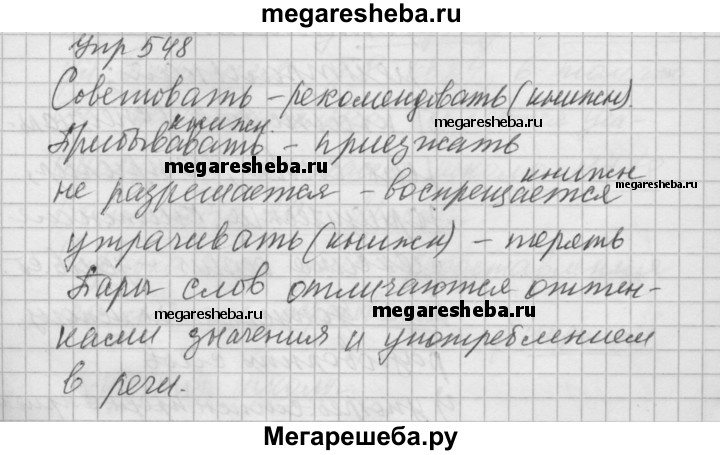 megaresheba.ru
Упр 548
Советовать – рекомендовать (книжн).
megaresheba.ru
книжн.
Прибывавать – приезжать
megaresheba.ru
книжн
не разрешается – воспрещается
megaresheba.ru
утрачивать (книжн) – терять
Пары слов отличаются оттен-
megaresheba.ru
megaresheba.ru
ками значения и употреблением
в речи.
Мегарешеба.ру